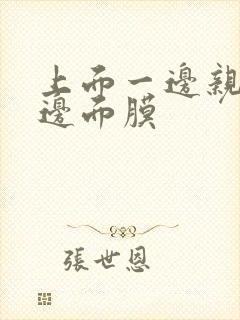 上而一邊親
邊而膜
張世恩